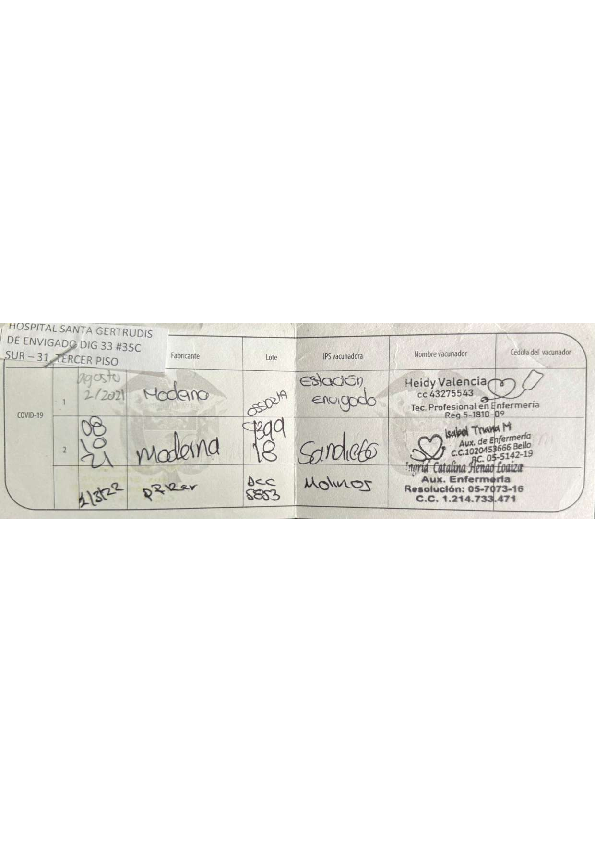 HOSPITAL SANTA GERTRUDIS
DE ENVIGADO DIG 33 #35C
SUR – 31, TERCER PISO
Fabricante Lote IPS vacunadora Nombre vacunador Cédula del vacunador
COVID-19
1 agosto 2/2021 Moderna 055D219 Estación Envigado
Heidy Valencia
cc 43275543
Tec. Profesional en Enfermería
Reg 5-1810-09
2 08 10 21 Moderna 18 Sandiego
Isabel Triana M
Aux. de Enfermería
C.C 1020453666 Bello
RC. 05-5142-19
Pfizer Acc 8853 Molinos
Catalina Henao Loaiza
Aux. Enfermería
Resolución: 05-7073-16
C.C. 1.214.733.471